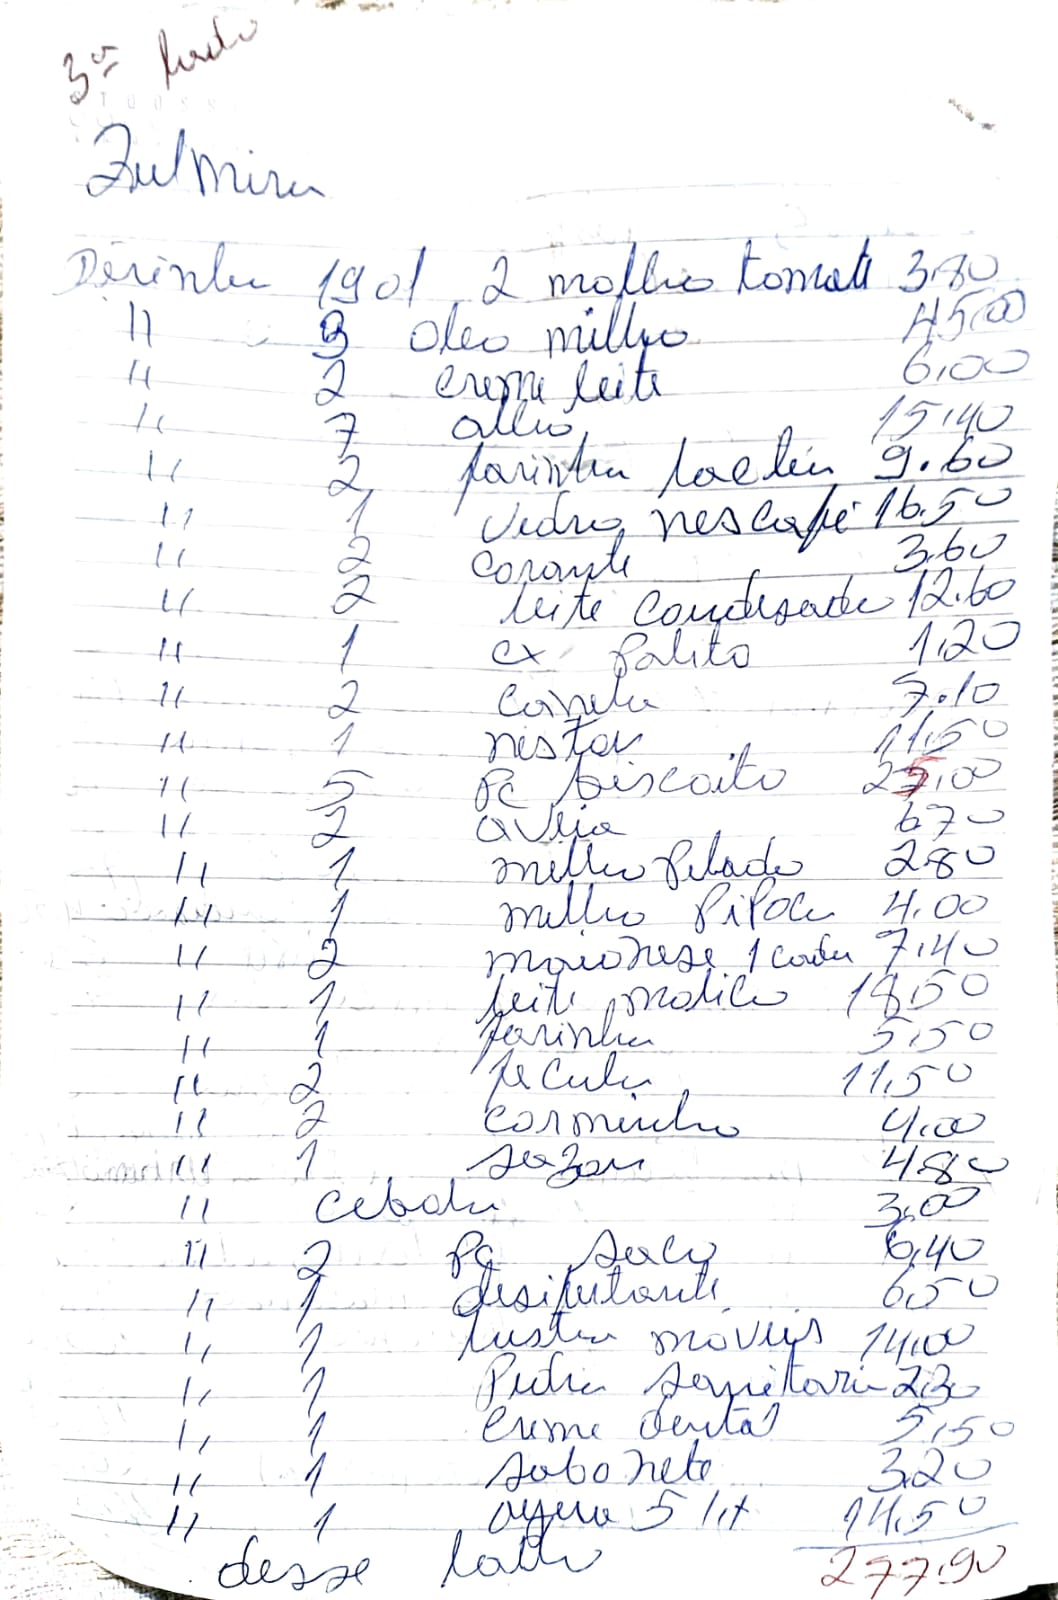 3º lado
Zulmira
Derinha 19 01 2 molho tomate 3.80
11 3 oleo milho 45,00
11 2 creme leite 6,00
11 7 alho 15,40
11 2 farinha lactea 9.60
11 1 vidro nescafé 16.50
11 2 corante 3.60
11 2 leite condesado 12.60
11 1 cx palito 1,20
11 2 canela 7.10
11 1 nestou 11,50
11 5 pc biscoito 27,00
11 2 aveia 6 70
11 1 milho pelado 2 80
11 1 milho pipoca 4.00
11 2 maionese 1 cada 7,40
11 1 leite molico 18,50
11 1 farinha 5,50
11 2 fecula 11,50
11 2 corminho 4,00
11 1 sazon 4 80
11 cebola 3,00
11 2 pc saco 6,40
11 1 desifetante 6,50
11 1 lustra moveis 14,00
11 1 Pedra sanitaria 2,30
11 1 creme dental 5,50
11 1 sabonete 3.20
11 1 agua 5 lit 14,50
desse lado 277.90